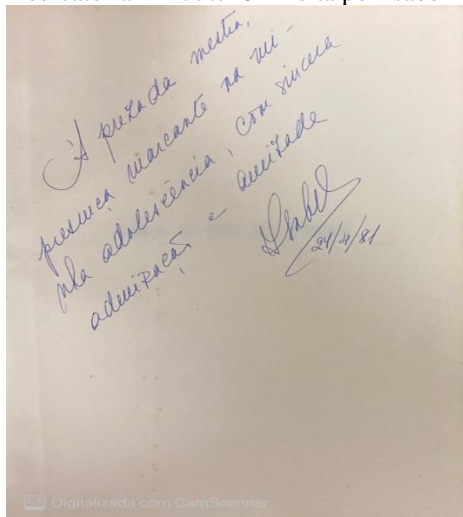 À prezada mestra,
presença marcante na mi-
nha adolescência, com sincera
admiração e amizade
Isabel
24/4/81
CS Digitalizada com CamScanner